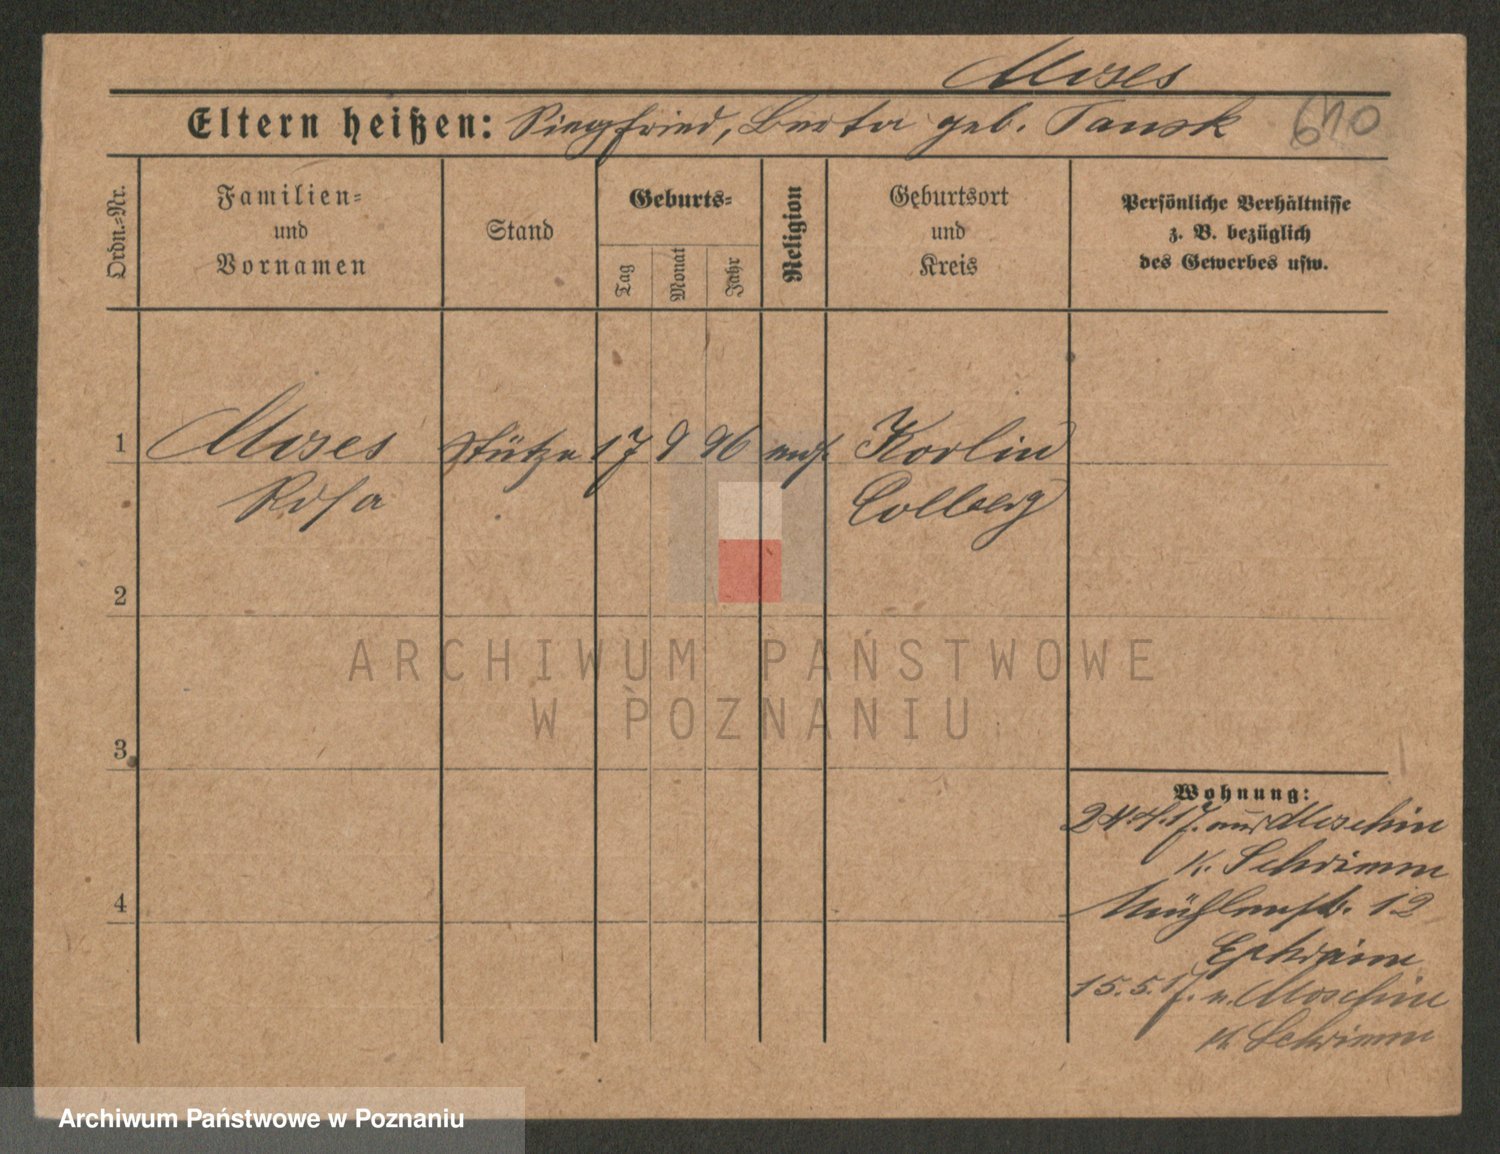 Moses
Eltern heißen: Siegfried, Berta geb. Tansk
640
Ordn.=Nr.
Familien=
und
Vornamen
Stand
Geburts=
Tag
Monat
Jahr
Religion
Geburtsort
und
Kreis
Persönliche Verhältnisse
z. B. bezüglich
des Gewerbes usw.
1
Moses Stütze 17 9 96 mos. Korlin
Rosa Colberg
2
ARCHIWUM PAŃSTWOWE
W POZNANIU
3
Wohnung:
24.4.17. aus Moschin
K. Schrimm
4
Mühlenstr. 12
Ephraim
15.5.17. n. Moschin
K. Schrimm
Archiwum Państwowe w Poznaniu